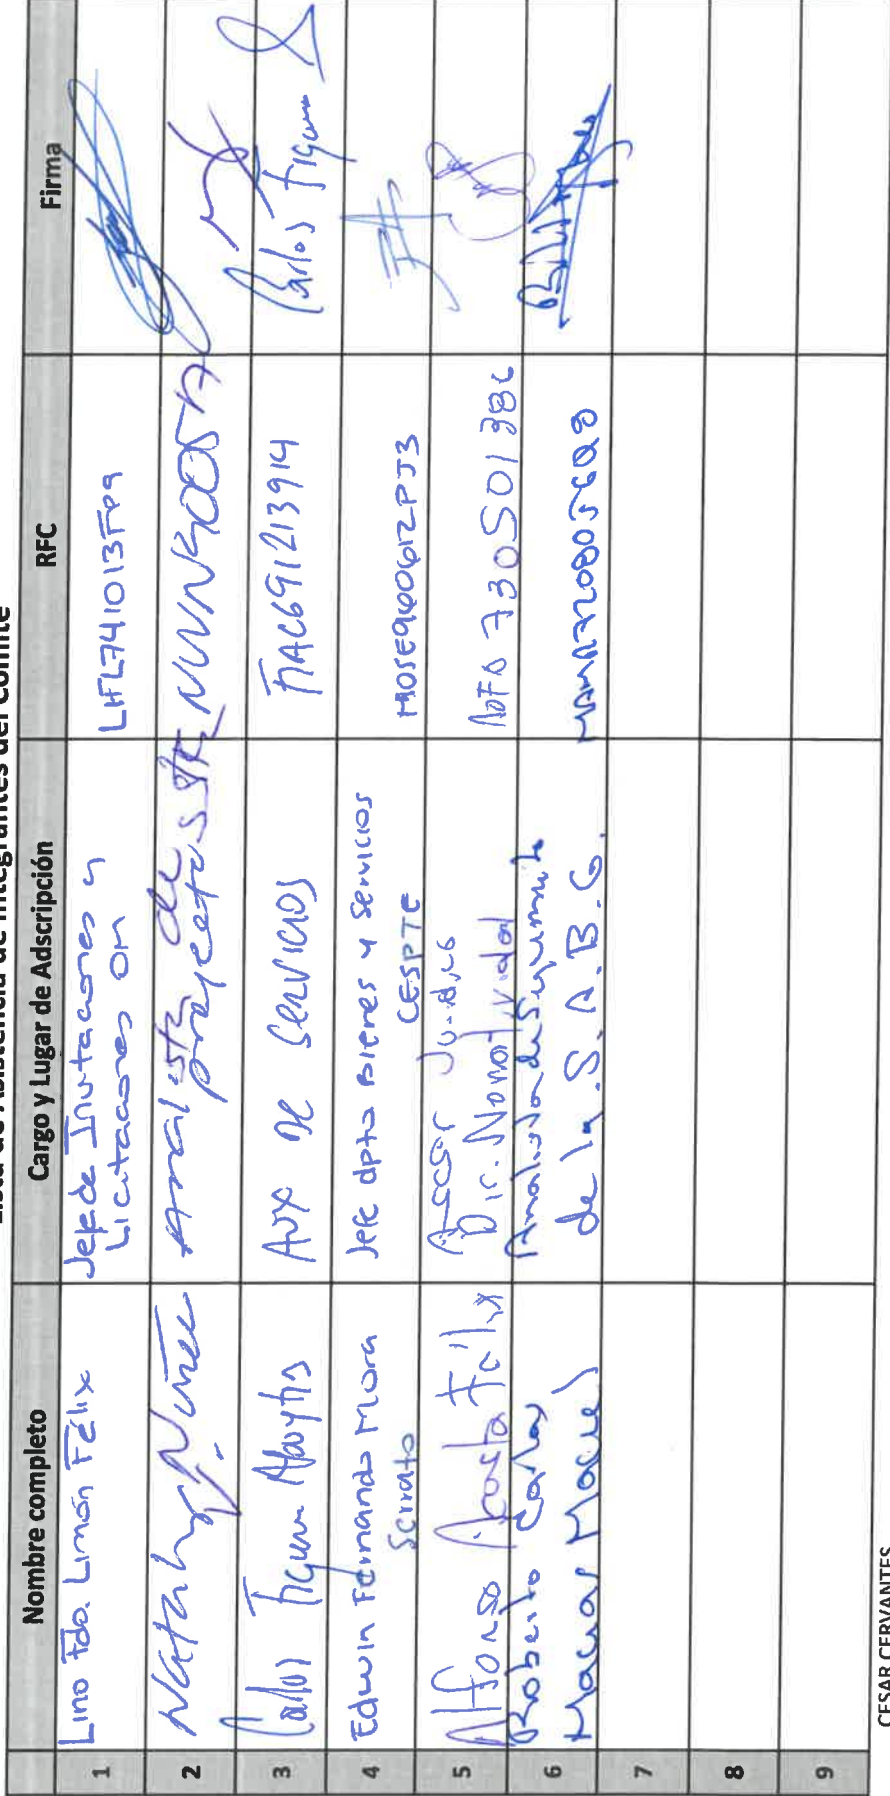 Lista de Asistencia de Integrantes del Comité
Nombre completo Cargo y Lugar de Adscripción RFC Firma
1 Lino Fdo. Limón Félix Jefe de Invitaciones y
Licitaciones OM LIFL741013FP9
2 Nathaly Núñez Analista de
proyectos
3 Carlos Figueroa Aux de Servicios FIAC691213914 Carlos Figueroa
4 Edwin Fernando Mora
Serrato Jefe dpto Bienes y Servicios
CESPTE MOSE960612PJ3
5 Alfonso Acosta Félix Asesor Jurídico
Dir. Normatividad AOFA73050138C
6 Roberto Carlos
Macias Macias Analista de Seguimiento
de la S.A.B.G.
7
8
9
CESAR CERVANTES